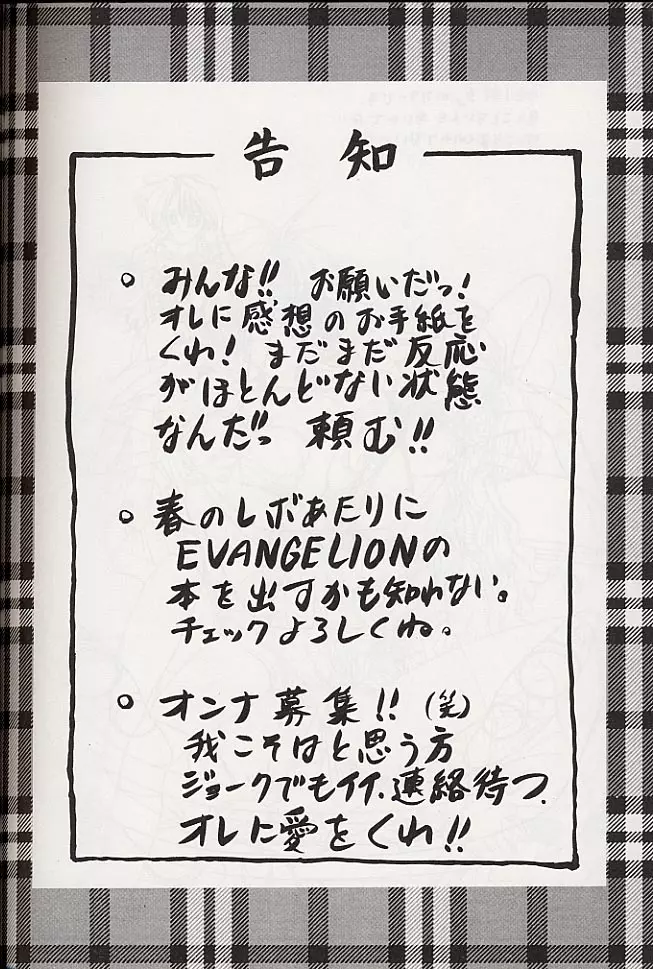 告知
○ みんな!! お願いだっ!
オレに感想のお手紙を
くれ! まだまだ反応
がほとんどない状態
なんだっ 頼む!!
○ 春のレボあたりに
EVANGELIONの
本を出すかも知れない。
チェックよろしくね。
○ オンナ募集!! (笑)
我こそはと思う方
ジョークでもイイ、連絡待つ、
オレに愛をくれ!!